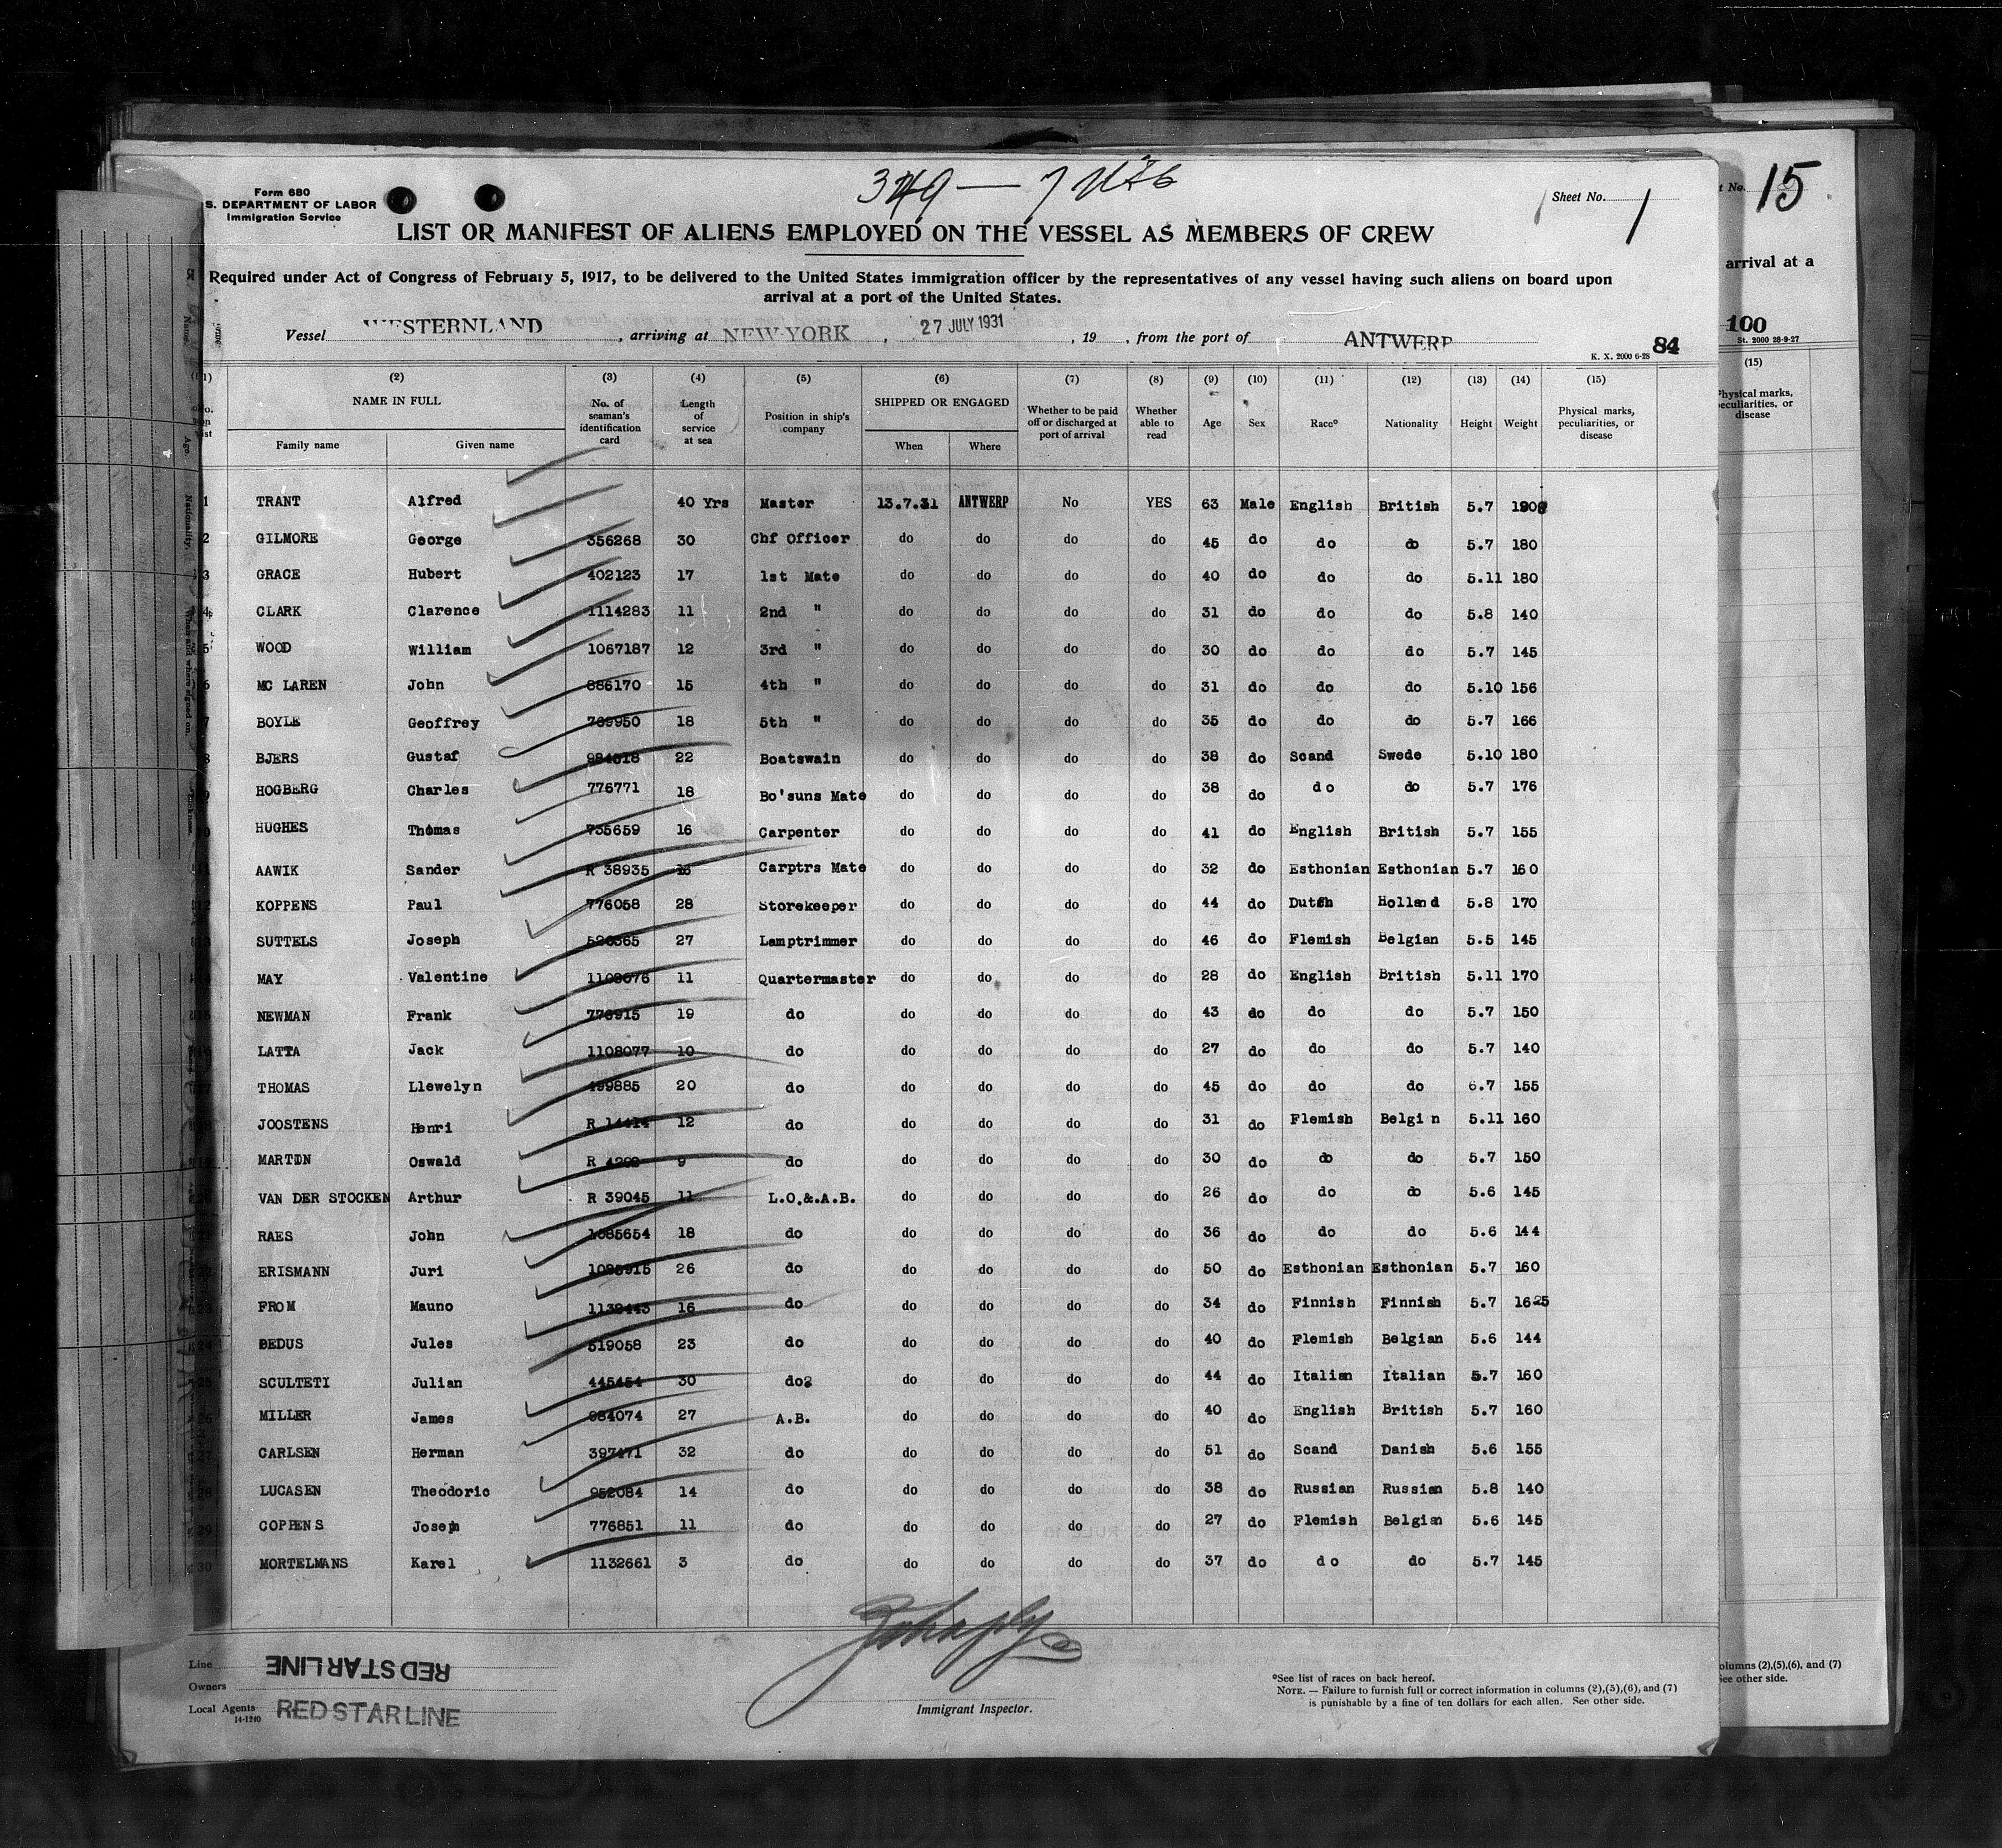 Form 680
S. DEPARTMENT OF LABOR
Immigration Service
349 — 7
Sheet No. 1
LIST OR MANIFEST OF ALIENS EMPLOYED ON THE VESSEL AS MEMBERS OF CREW
Required under Act of Congress of February 5, 1917, to be delivered to the United States immigration officer by the representatives of any vessel having such aliens on board upon
arrival at a port of the United States.
Vessel WESTERNLAND, arriving at NEW-YORK, 27 JULY 1931, 19 , from the port of ANTWERP
K. X. 2000 6-28 84
(1) (2) (3) (4) (5) (6) (7) (8) (9) (10) (11) (12) (13) (14) (15)
NAME IN FULL No. of seaman's identification card Length of service at sea Position in ship's company SHIPPED OR ENGAGED Whether to be paid off or discharged at port of arrival Whether able to read Age Sex Race° Nationality Height Weight Physical marks, peculiarities, or disease
Family name Given name When Where
1 TRANT Alfred 40 Yrs Master 13.7.31 ANTWERP No YES 63 Male English British 5.7 190
2 GILMORE George 356268 30 Chf Officer do do do do 45 do do do 5.7 180
3 GRACE Hubert 402123 17 1st Mate do do do do 40 do do do 5.11 180
4 CLARK Clarence 1114283 11 2nd " do do do do 31 do do do 5.8 140
5 WOOD William 1067187 12 3rd " do do do do 30 do do do 5.7 145
6 MC LAREN John 886170 15 4th " do do do do 31 do do do 5.10 156
7 BOYLE Geoffrey 769950 18 5th " do do do do 35 do do do 5.7 166
8 BJERS Gustaf 984518 22 Boatswain do do do do 38 do Scand Swede 5.10 180
9 HOGBERG Charles 776771 18 Bo'suns Mate do do do do 38 do do do 5.7 176
10 HUGHES Thomas 735659 16 Carpenter do do do do 41 do English British 5.7 155
11 AAWIK Sander R 38935 Carptrs Mate do do do do 32 do Esthonian Esthonian 5.7 160
12 KOPPENS Paul 776058 28 Storekeeper do do do do 44 do Dutch Holland 5.8 170
13 SUTTELS Joseph 27 Lamptrimmer do do do do 46 do Flemish Belgian 5.5 145
14 MAY Valentine 11 Quartermaster do do do do 28 do English British 5.11 170
15 NEWMAN Frank 776915 19 do do do do do 43 do do do 5.7 150
16 LATTA Jack 1108077 10 do do do do do 27 do do do 5.7 140
17 THOMAS Llewelyn 499885 20 do do do do do 45 do do do 6.7 155
18 JOOSTENS Henri R 14414 12 do do do do do 31 do Flemish Belgi n 5.11 160
19 MARTIN Oswald 9 do do do do do 30 do do do 5.7 150
20 VAN DER STOCKEN Arthur R 39045 11 L.O.&.A.B. do do do do 26 do do do 5.6 145
21 RAES John 1085654 18 do do do do do 36 do do do 5.6 144
22 ERISMANN Juri 1085915 26 do do do do do 50 do Esthonian Esthonian 5.7 160
23 FROM Mauno 1132443 16 do do do do do 34 do Finnish Finnish 5.7
24 DEDUS Jules 519058 23 do do do do do 40 do Flemish Belgian 5.6 144
25 SCULTETI Julian 445454 30 do do do do do 44 do Italian Italian 5.7 160
26 MILLER James 984074 27 A.B. do do do do 40 do English British 5.7 160
27 CARLSEN Herman 397471 32 do do do do do 51 do Scand Danish 5.6 155
28 LUCASEN Theodoric 952084 14 do do do do do 38 do Russian Russian 5.8 140
29 COPPENS Joseph 776851 11 do do do do do 27 do Flemish Belgian 5.6 145
30 MORTELMANS Karel 1132661 3 do do do do do 37 do do do 5.7 145
Line RED STAR LINE
Owners
Local Agents RED STAR LINE
14-1240
Immigrant Inspector.
°See list of races on back hereof.
NOTE. — Failure to furnish full or correct information in columns (2),(5),(6), and (7)
is punishable by a fine of ten dollars for each alien. See other side.
t No. 15
arrival at a
100
St. 2000 28-9-27
(15)
Physical marks,
peculiarities, or
disease
olumns (2),(5),(6), and (7)
See other side.